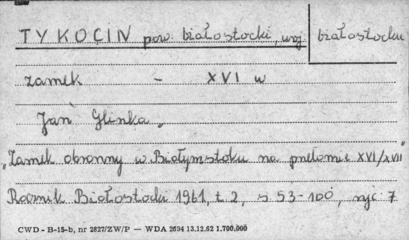 TYKOCIN pow. białostocki, woj. białostockie
zamek - XVI w
Jan Glinka,
"Zamek obronny w Białymstoku na przełomie XVI/XVII"
Rocznik Białostocki 1961, t. 2, s 53-100, ryc. 7
CWD - B-15-b, nr 2827/ZW/P — WDA 2694 13.12.62 1.700.000